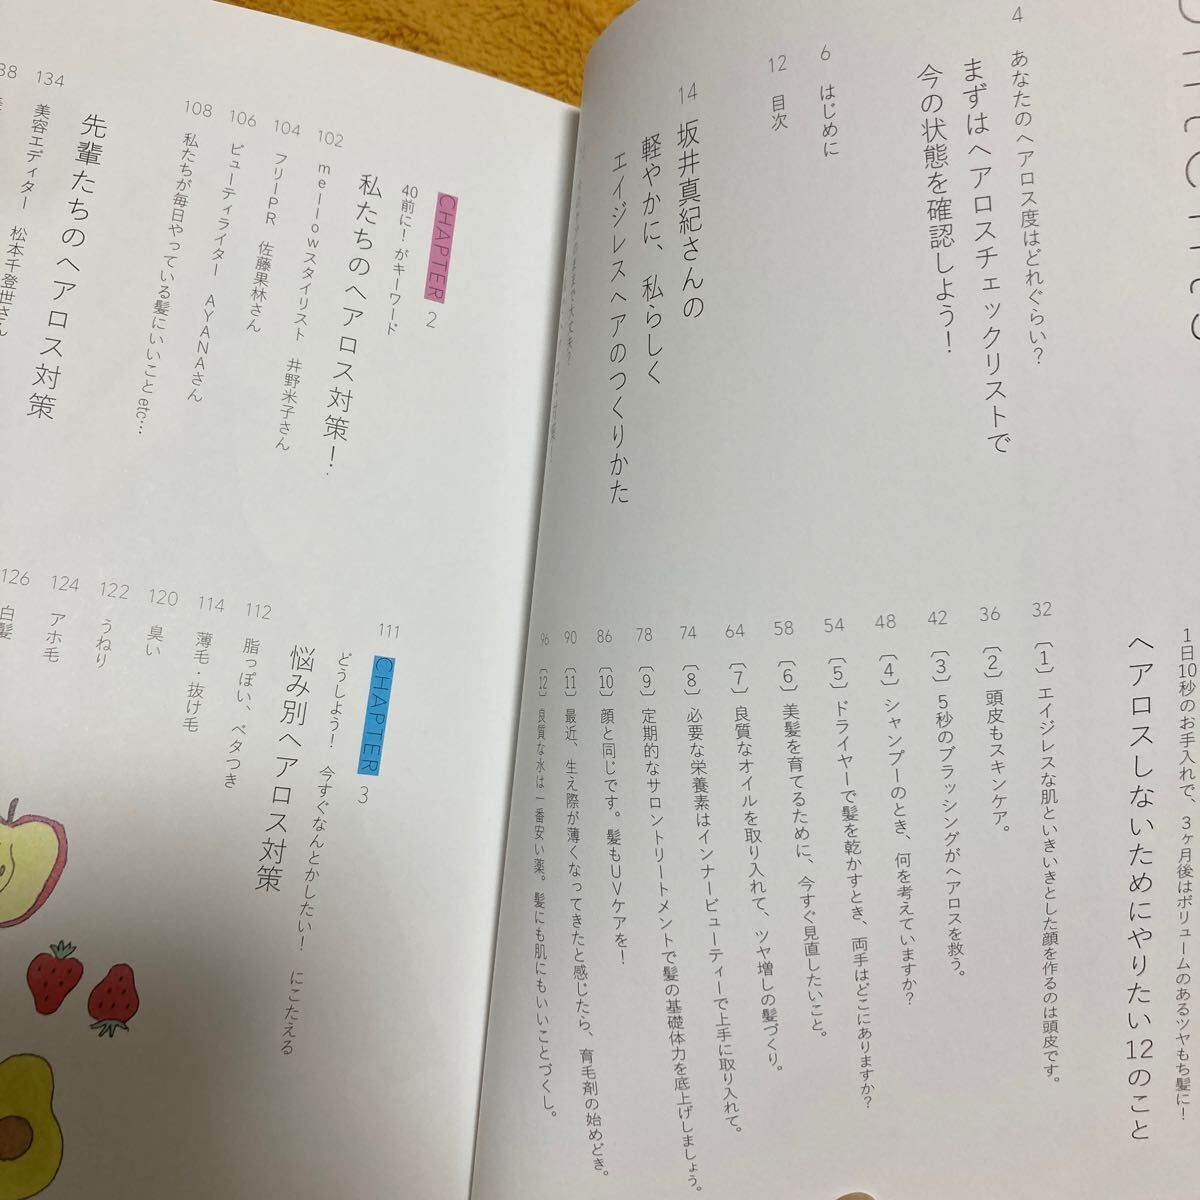 4 あなたのヘアロス度はどれぐらい？
まずはヘアロスチェックリストで
今の状態を確認しよう！
6 はじめに
12 目次
14 坂井真紀さんの
軽やかに、私らしく
エイジレスヘアのつくりかた
1日10秒のお手入れで、3ヶ月後はボリュームのあるツヤもち髪に！
ヘアロスしないためにやりたい12のこと
32 〔1〕エイジレスな肌といきいきとした顔を作るのは頭皮です。
36 〔2〕頭皮もスキンケア。
42 〔3〕5秒のブラッシングがヘアロスを救う。
48 〔4〕シャンプーのとき、何を考えていますか？
54 〔5〕ドライヤーで髪を乾かすとき、両手はどこにありますか？
58 〔6〕美髪を育てるために、今すぐ見直したいこと。
64 〔7〕良質なオイルを取り入れて、ツヤ増しの髪づくり。
74 〔8〕必要な栄養素はインナービューティーで上手に取り入れて。
78 〔9〕定期的なサロントリートメントで髪の基礎体力を底上げしましょう。
86 〔10〕顔と同じです。髪もUVケアを！
90 〔11〕最近、生え際が薄くなってきたと感じたら、育毛剤の始めどき。
96 〔12〕良質な水は一番安い薬。髪にも肌にもいいことづくし。
CHAPTER 2
40前に！がキーワード
私たちのヘアロス対策！
102 mellowスタイリスト 井野米子さん
104 フリーPR 佐藤果林さん
106 ビューティライター AYANAさん
108 私たちが毎日やっている髪にいいことetc…
先輩たちのヘアロス対策
134 美容エディター 松本千登世さん
CHAPTER 3
111 どうしよう！ 今すぐなんとかしたい！ にこたえる
悩み別ヘアロス対策
112 脂っぽい、ベタつき
114 薄毛・抜け毛
120 臭い
122 うねり
124 アホ毛
126 白髪